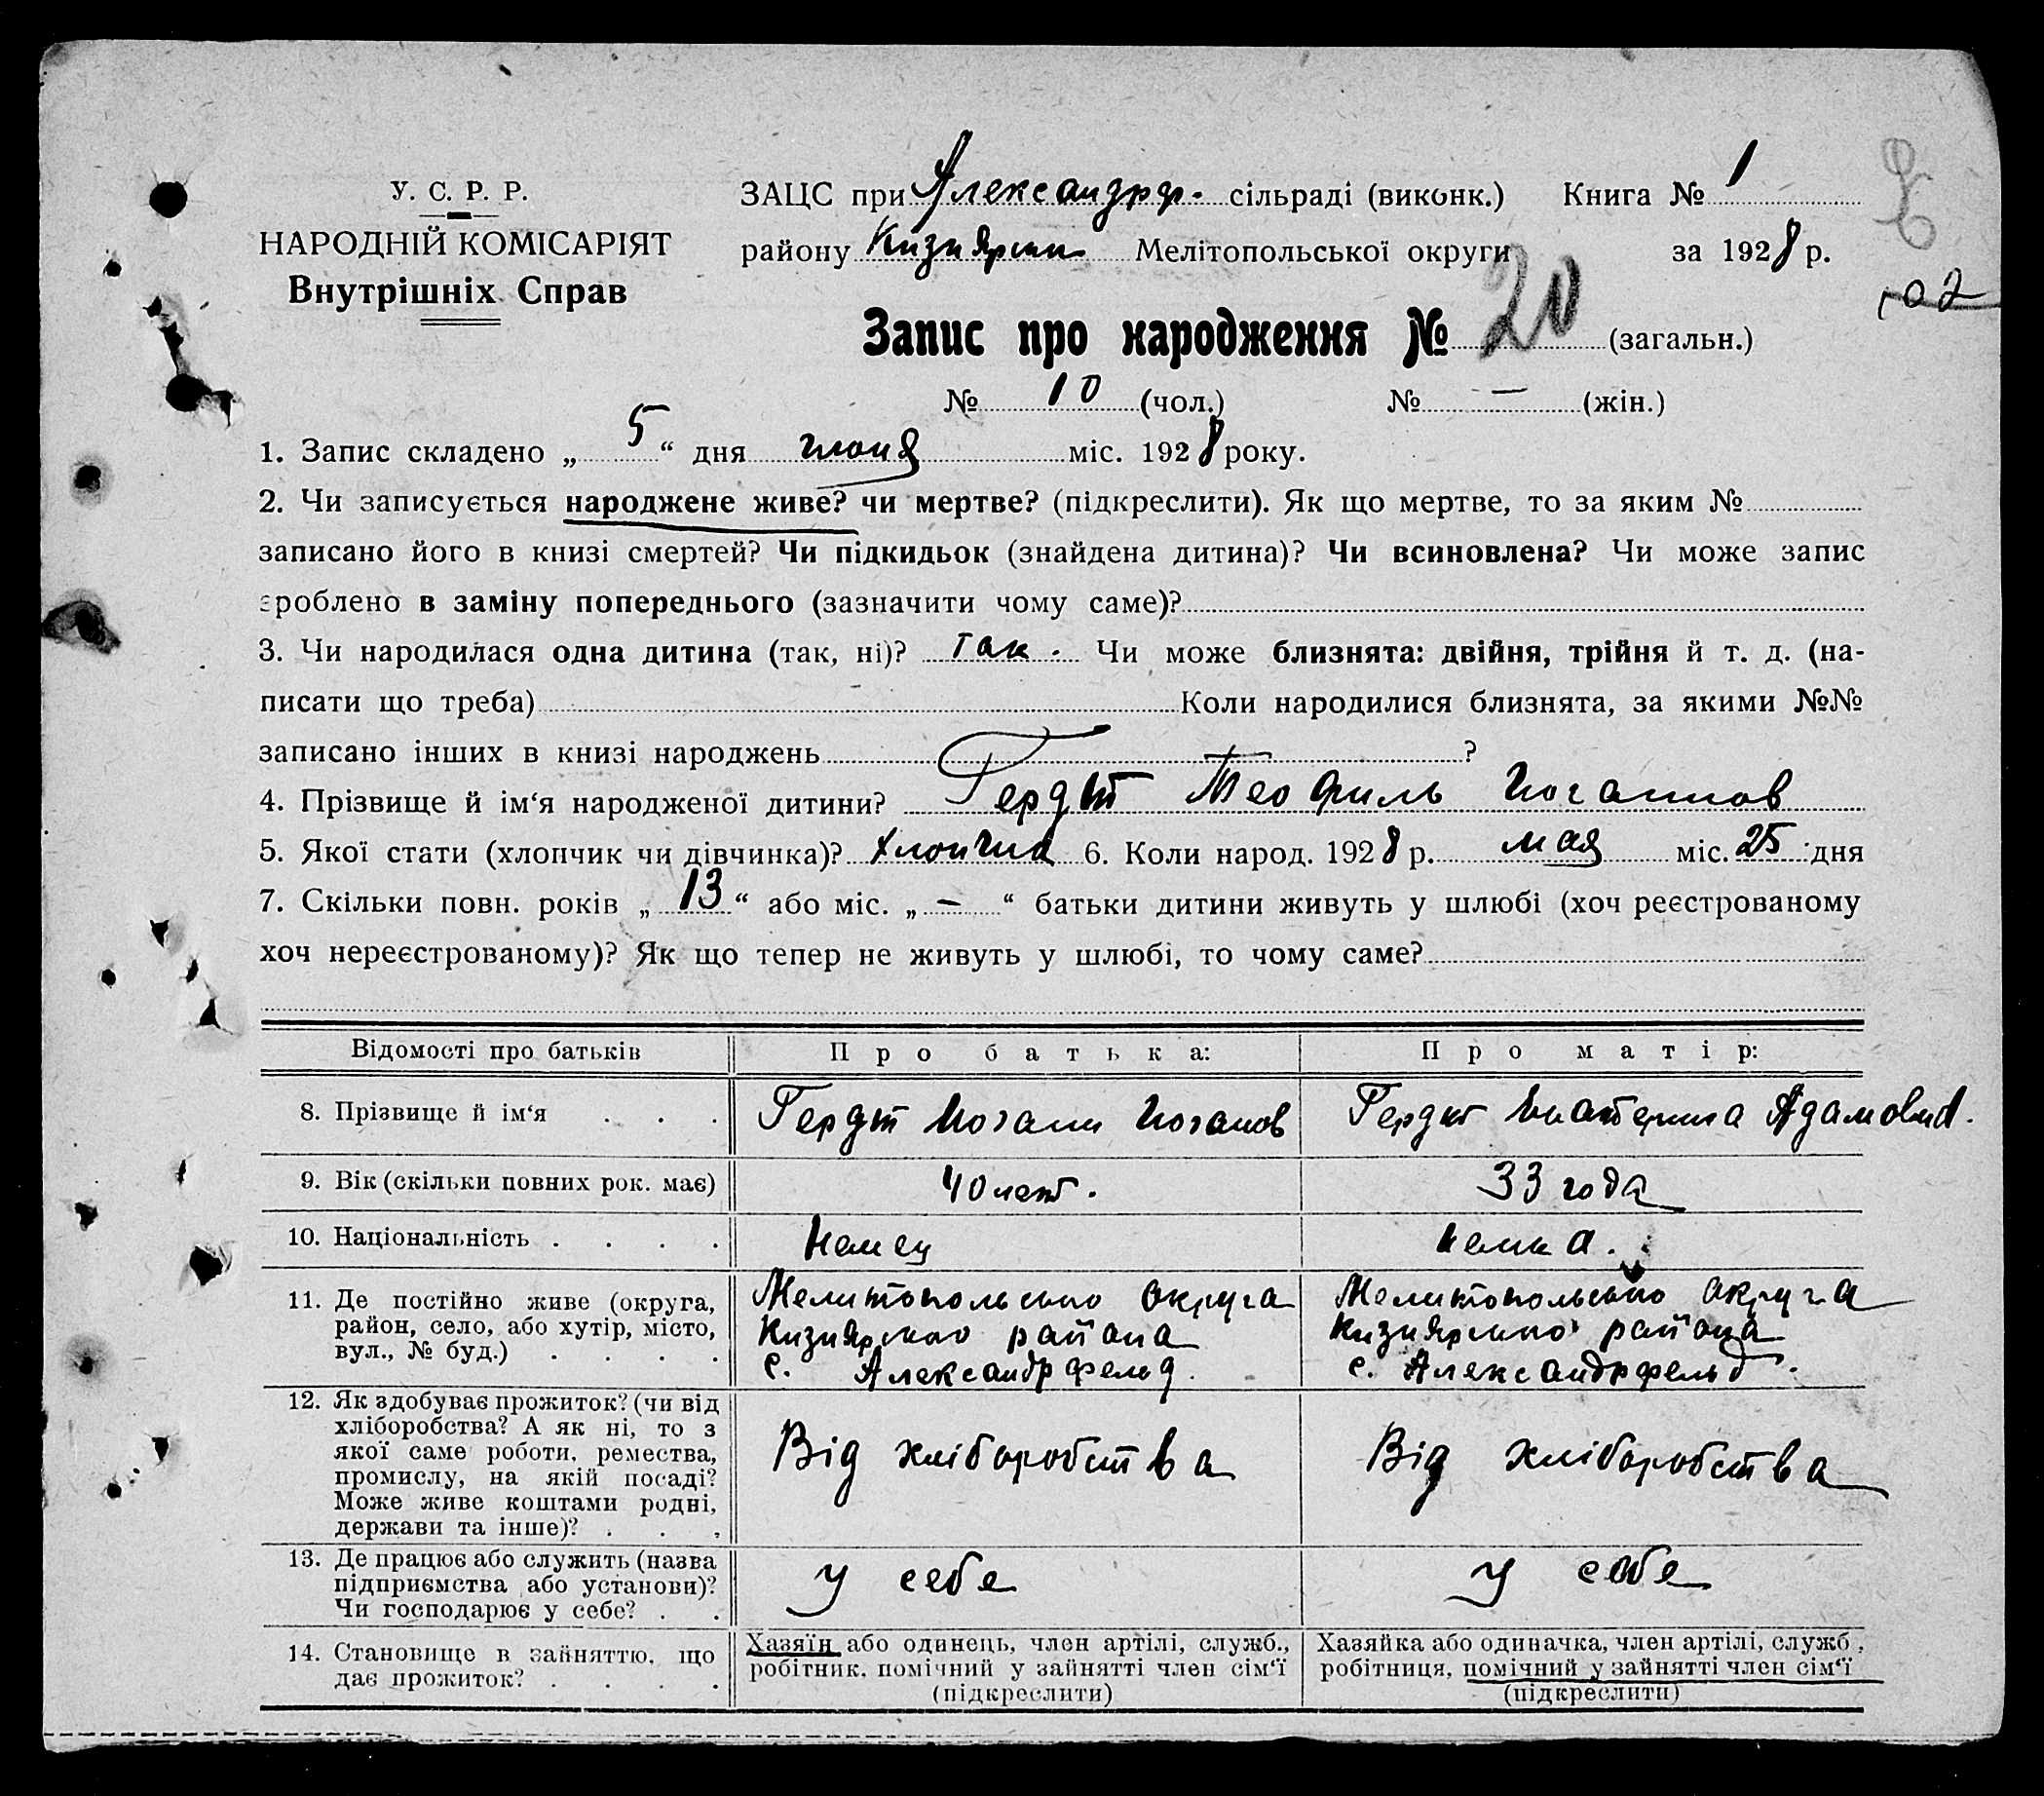 У. С. Р. Р.
НАРОДНІЙ КОМІСАРІЯТ
Внутрішніх Справ
ЗАЦС при Александрф. сільраді (виконк.) Книга № 1
району Кизиярски Мелітопольської округи за 1928 р.
102
Запис про народження № 20 (загальн.)
№ 10 (чол.) № — (жін.)
1. Запис складено „ 5 “ дня июня міс. 1928 року.
2. Чи записується народжене живе? чи мертве? (підкреслити). Як що мертве, то за яким №
записано його в книзі смертей? Чи підкидьок (знайдена дитина)? Чи всиновлена? Чи може запис
зроблено в заміну попереднього (зазначити чому саме)?
3. Чи народилася одна дитина (так, ні)? так. Чи може близнята: двійня, трійня й т. д. (на-
писати що треба) Коли народилися близнята, за якими №№
записано інших в книзі народжень ?
4. Прізвище й ім‘я народженої дитини? Гердт Теофиль Иоганнов
5. Якої стати (хлопчик чи дівчинка)? 6. Коли народ. 1928 р. мая міс. 25 дня
7. Скільки повн. років „ 13 “ або міс. „ — “ батьки дитини живуть у шлюбі (хоч реєстрованому
хоч нереєстрованому)? Як що тепер не живуть у шлюбі, то чому саме?
Відомості про батьків
Про батька:
Про матір:
8. Прізвище й ім‘я . . .
Гердт Иоганн Иоганов
Гердт Екатерина Адамовна.
9. Вік (скільки повних рок. має)
40 лет.
33 года
10. Національність . . . .
Немец
немка.
11. Де постійно живе (округа,
район, село, або хутір, місто,
вул., № буд.) . . . .
Мелитопольсько округа
Кизиярского района
с. Александрфельд.
Мелитопольсько округа
Кизиярского района
с. Александрфельд.
12. Як здобуває прожиток? (чи від
хліборобства? А як ні, то з
якої саме роботи, ремества,
промислу, на якій посаді?
Може живе коштами родні,
держави та інше)? . . .
Від хліборобства
Від хліборобства
13. Де працює або служить (назва
підприємства або установи)?
Чи господарює у себе? . .
у себе
у себе
14. Становище в зайняттю, що
дає прожиток? . . . .
Хазяїн або одинець, член артілі, служб.,
робітник, помічний у зайнятті член сім‘ї
(підкреслити)
Хазяйка або одиначка, член артілі, служб.,
робітниця, помічний у зайнятті член сім‘ї
(підкреслити)